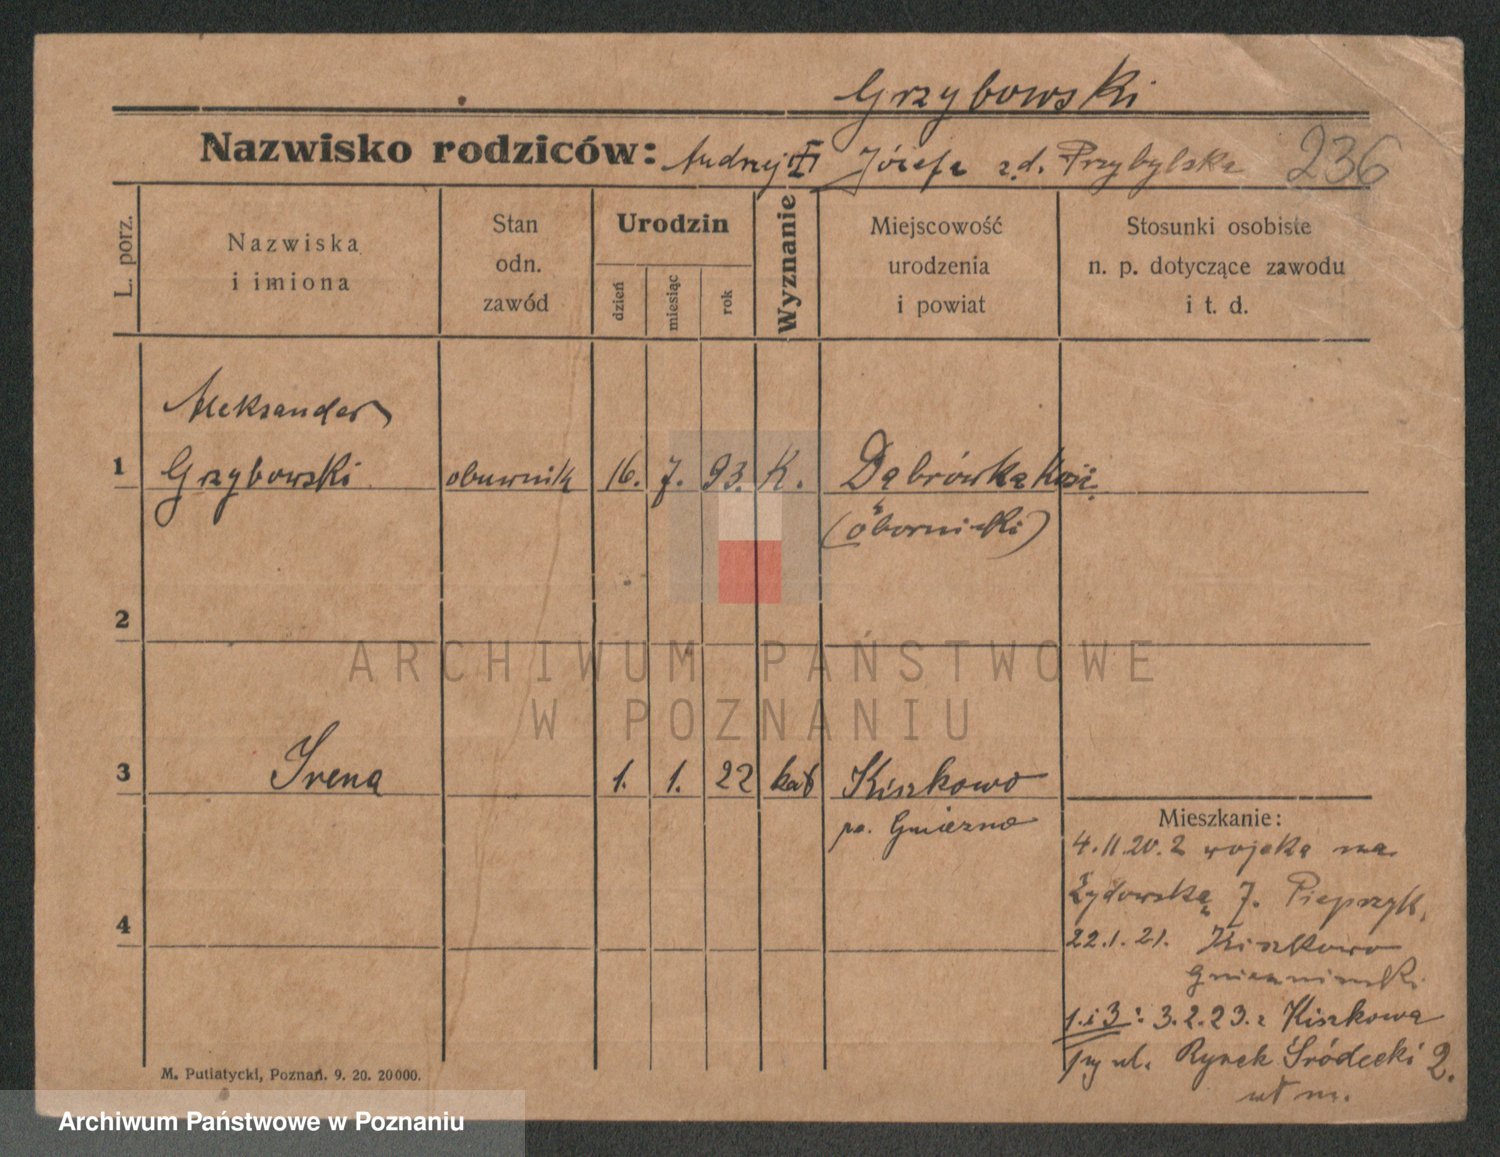 Grzybowski
Nazwisko rodziców: Andrzej Józefa z d. Przybylska 236
L. porz.
Nazwiska
i imiona
Stan
odn.
zawód
Urodzin
dzień
miesiąc
rok
Wyznanie
Miejscowość
urodzenia
i powiat
Stosunki osobiste
n. p. dotyczące zawodu
i t. d.
Aleksander
1 Grzybowski obuwnik 16. 7. 93. K. Dąbrówka Kość.
(Obornicki)
2
ARCHIWUM PAŃSTWOWE
W POZNANIU
3 Irena 1. 1. 22 kat Kiszkowo
Gniezno
4
Mieszkanie:
4.11.20. z wojska na
Żydowską 7. Pieprzyk
22.1.21. Kiszkowo
Gniezninski
1. i 3: 3.2.23. z Kiszkowa
ul. Rynek Śródecki 2.
M. Putiatycki, Poznań. 9. 20. 20000.
Archiwum Państwowe w Poznaniu